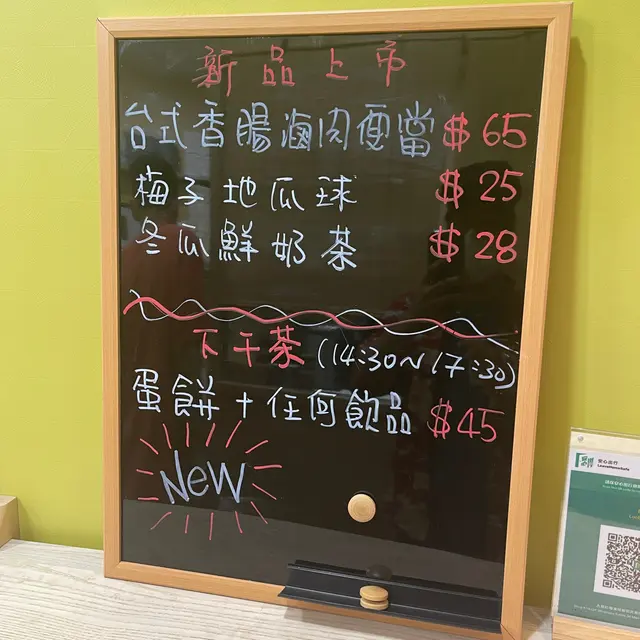 新品上市
台式香腸滷肉便當 $65
梅子地瓜球 $25
冬瓜鮮奶茶 $28
下干茶 (14:30~17:30)
蛋餅+任何飲品 $45
New
安心出行
LeaveHomeSafe